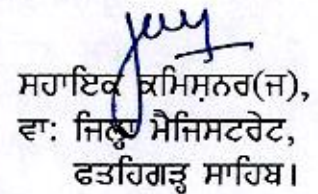 ਸਹਾਇਕ ਕਮਿਸ਼ਨਰ(ਜ),
ਵਾ: ਜਿਲ੍ਹਾ ਮੈਜਿਸਟਰੇਟ,
ਫਤਹਿਗੜ੍ਹ ਸਾਹਿਬ।